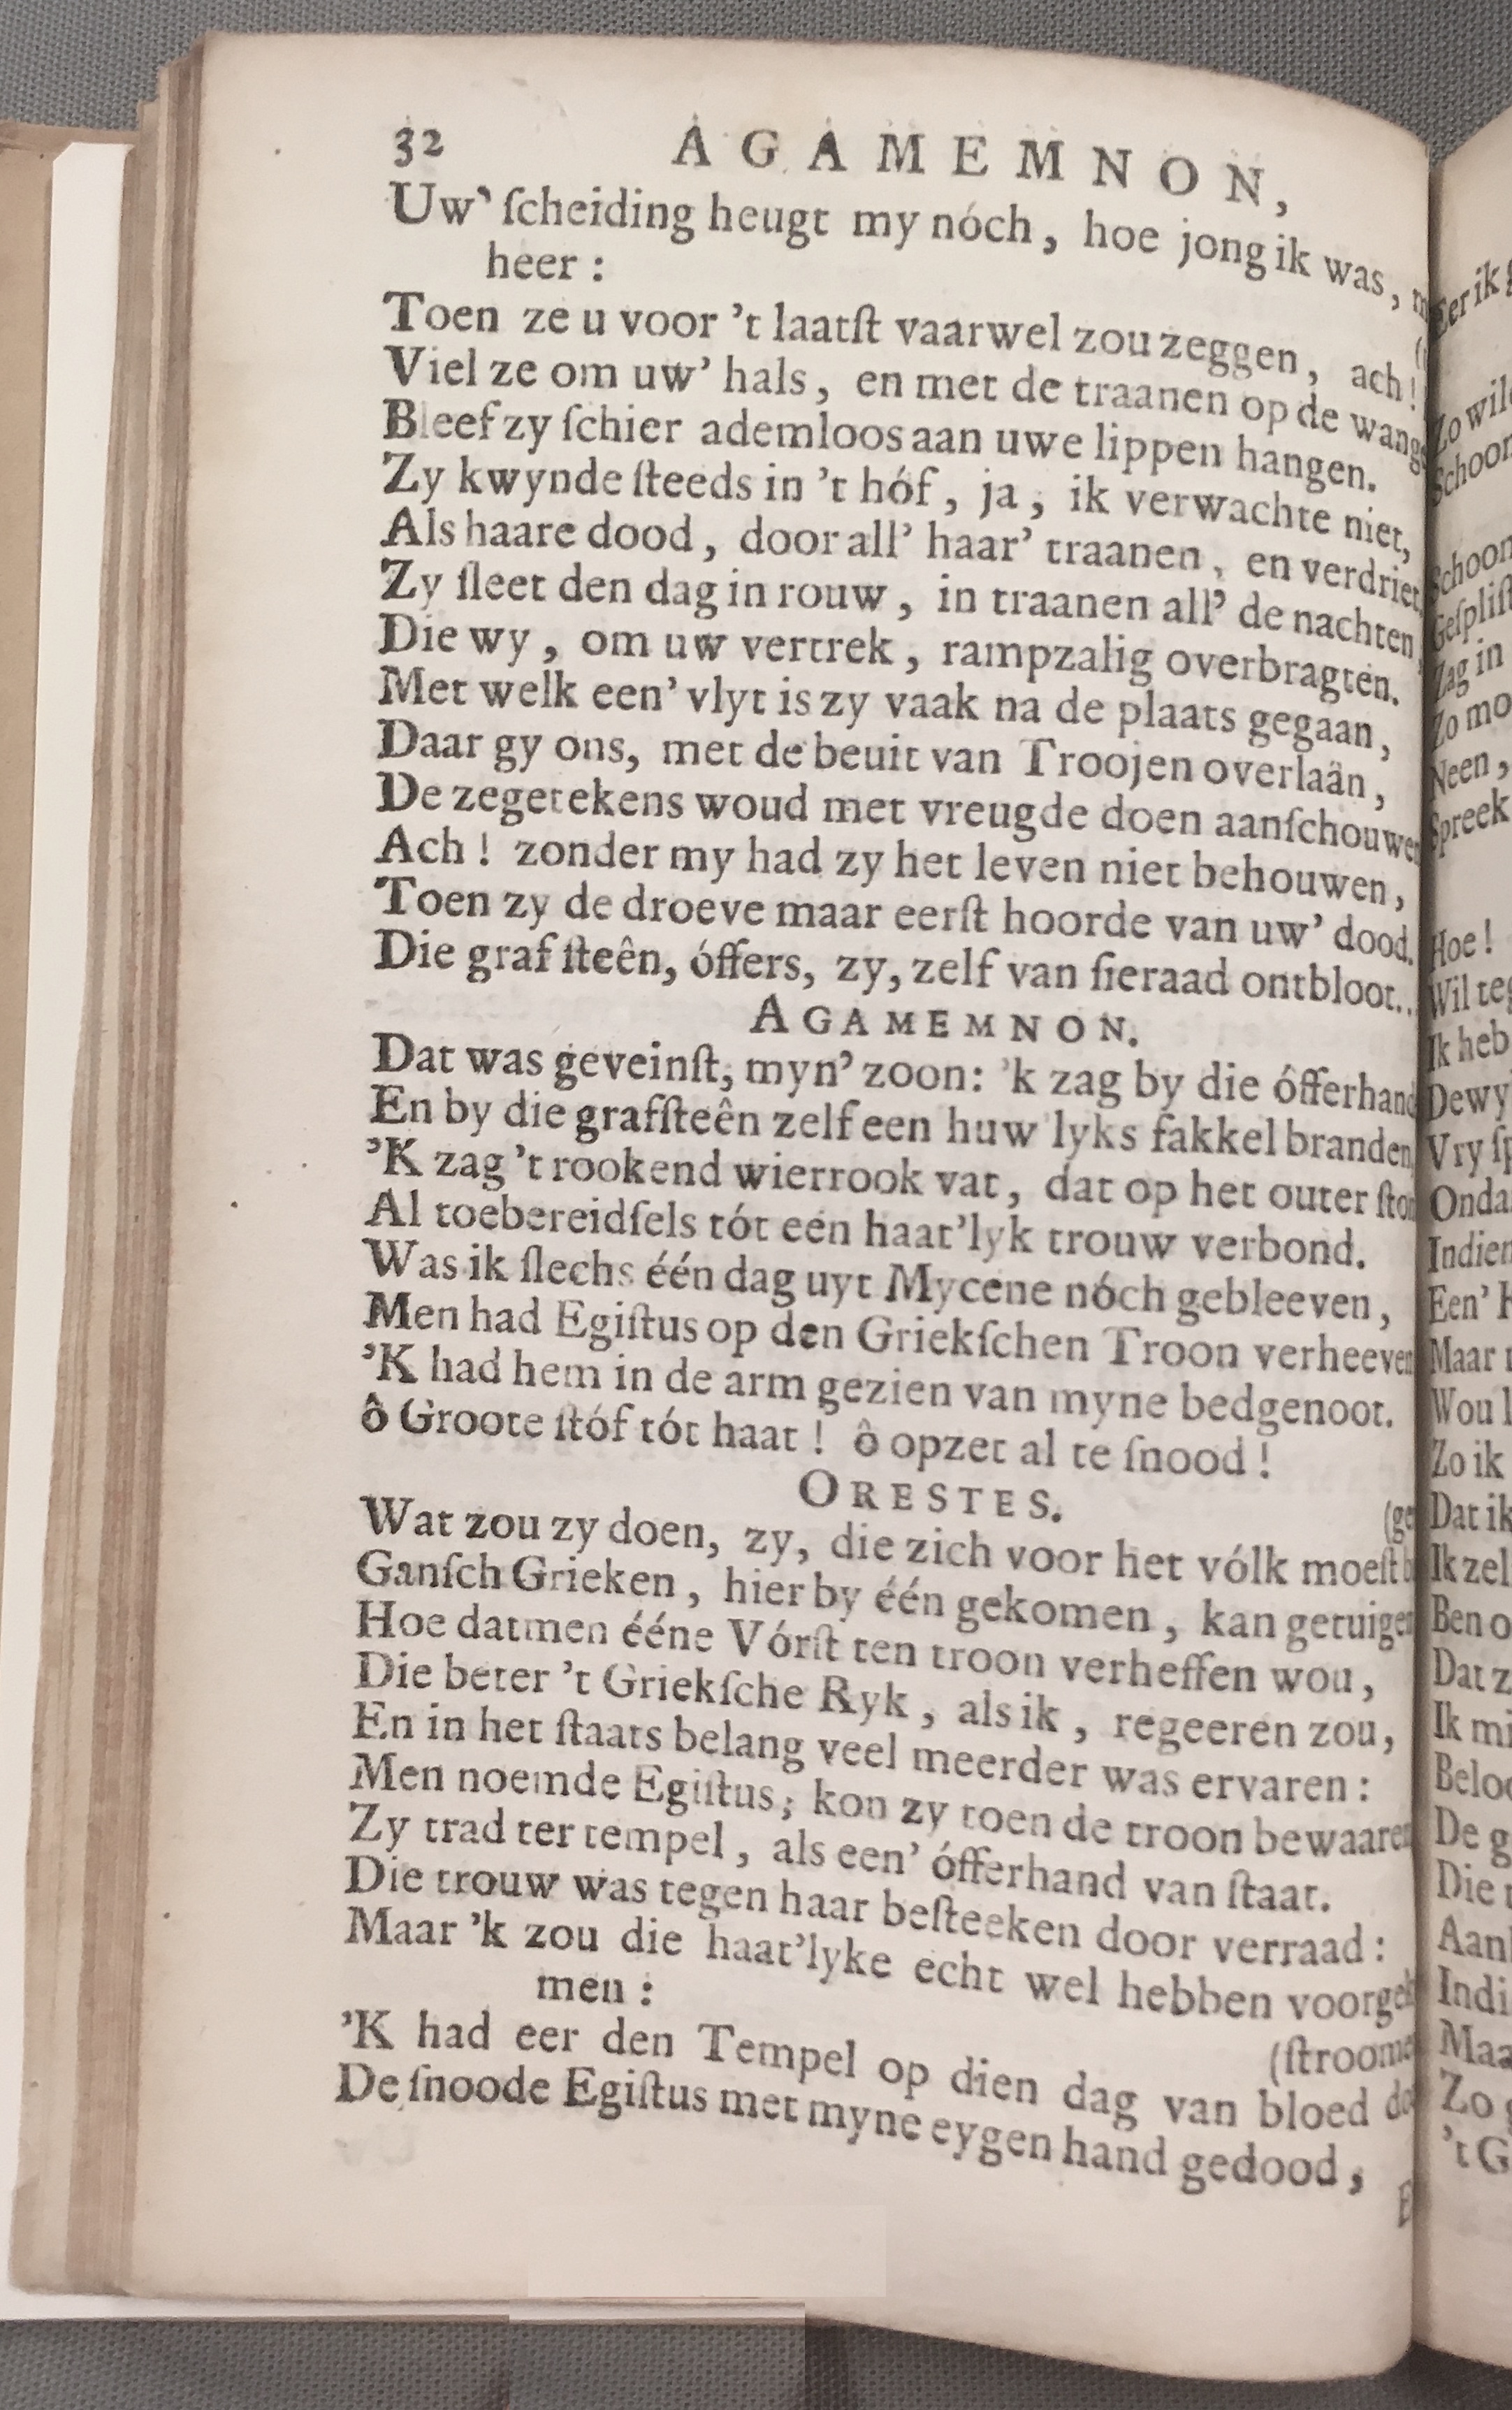 32 AGAMEMNON,
Uw' ſcheiding heugt my nóch, hoe jong ik was,
heer:
Toen ze u voor 't laatſt vaarwel zou zeggen, ach!
Viel ze om uw' hals, en met de traanen op de wang
Bleef zy ſchier ademloos aan uwe lippen hangen.
Zy kwynde ſteeds in 't hóf, ja, ik verwachte niet,
Als haare dood, door all' haar' traanen, en verdriet,
Zy ſleet den dag in rouw, in traanen all' de nachten,
Die wy, om uw vertrek, rampzalig overbragten.
Met welk een' vlyt is zy vaak na de plaats gegaan,
Daar gy ons, met de beuit van Troojen overlaän,
De zegetekens woud met vreugde doen aanſchouwe
Ach! zonder my had zy het leven niet behouwen,
Toen zy de droeve maar eerſt hoorde van uw' dood.
Die graf ſteên, óffers, zy, zelf van ſieraad ontbloot..
AGAMEMNON.
Dat was geveinſt, myn' zoon: 'k zag by die ófferhand
En by die grafſteên zelf een huw lyks fakkel branden,
'K zag 't rookend wierrook vat, dat op het outer ſton
Al toebereidſels tót een haat'lyk trouw verbond.
Was ik ſlechs één dag uyt Mycene nóch gebleeven,
Men had Egiſtus op den Griekſchen Troon verheeven
'K had hem in de arm gezien van myne bedgenoot.
ô Groote ſtóf tót haat! ô opzet al te ſnood!
ORESTES.
(ge
Wat zou zy doen, zy, die zich voor het vólk moeſt b
Ganſch Grieken, hier by één gekomen, kan getuigen
Hoe datmen ééne Vórſt ten troon verheffen wou,
Die beter 't Griekſche Ryk, als ik, regeeren zou,
En in het ſtaats belang veel meerder was ervaren:
Men noemde Egiſtus; kon zy toen de troon bewaaren
Zy trad ter tempel, als een' ófferhand van ſtaat.
Die trouw was tegen haar beſteeken door verraad:
Maar 'k zou die haat'lyke echt wel hebben voorge
men:
(ſtroome
'K had eer den Tempel op dien dag van bloed do
De ſnoode Egiſtus met myne eygen hand gedood,
E
Eer ik
Zo wil
Schoon
Schoon
Geſpliſt
Zag in
Zo mo
Neen,
Spreek
Hoe!
Wil te
Ik heb
Dewy
Vry ſp
Onda
Indien
Een'
Maar
Wou
Zo ik
Dat ik
Ik zel
Ben o
Dat z
Ik mi
Beloo
De g
Die
Aan
Indi
Maa
Zo
't G